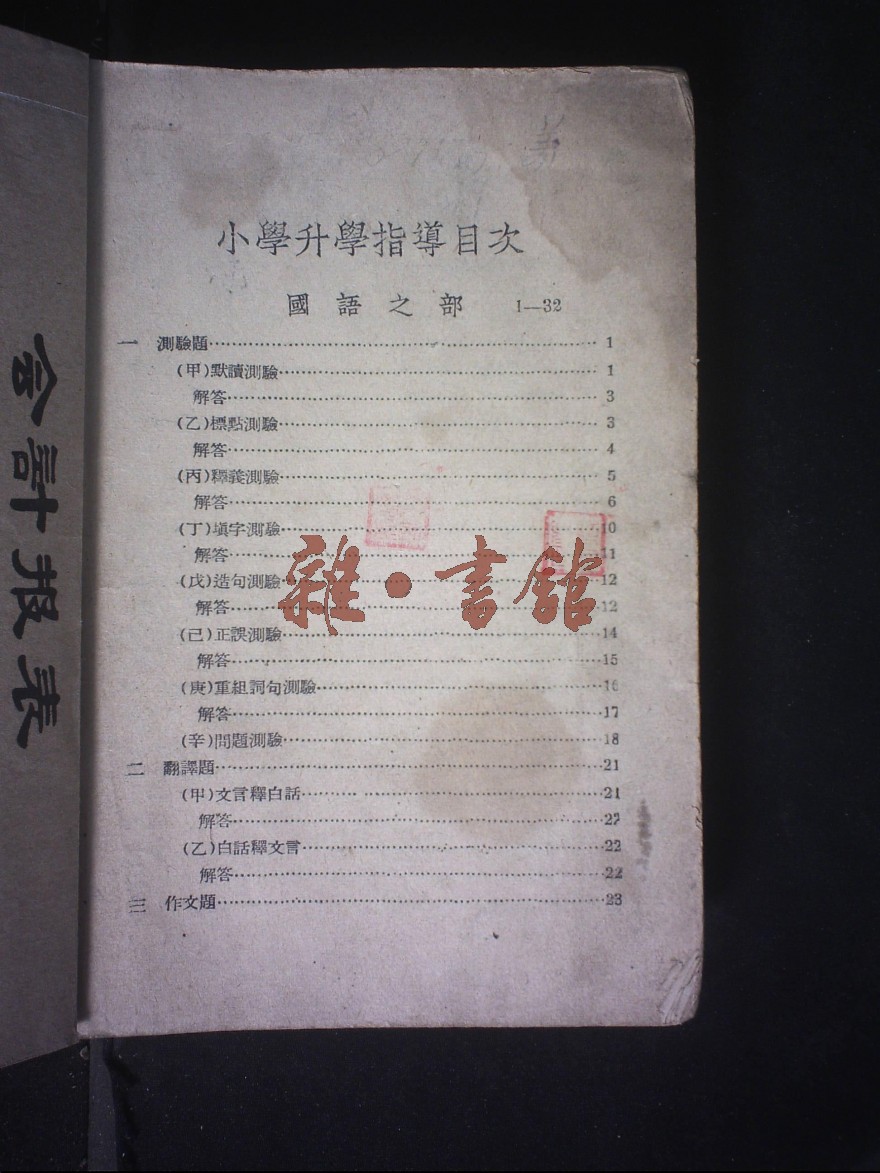 小學升學指導目次
國語之部 1—32
一 測驗題 1
(甲)默讀測驗 1
解答 3
(乙)標點測驗 3
解答 4
(丙)釋義測驗 5
解答 6
(丁)填字測驗 10
解答 11
(戊)造句測驗 12
解答 12
(己)正誤測驗 14
解答 15
(庚)重組詞句測驗 16
解答 17
(辛)問題測驗 18
二 翻譯題 21
(甲)文言釋白話 21
解答 22
(乙)白話釋文言 22
解答 22
三 作文題 23
雜·書館
会計报表